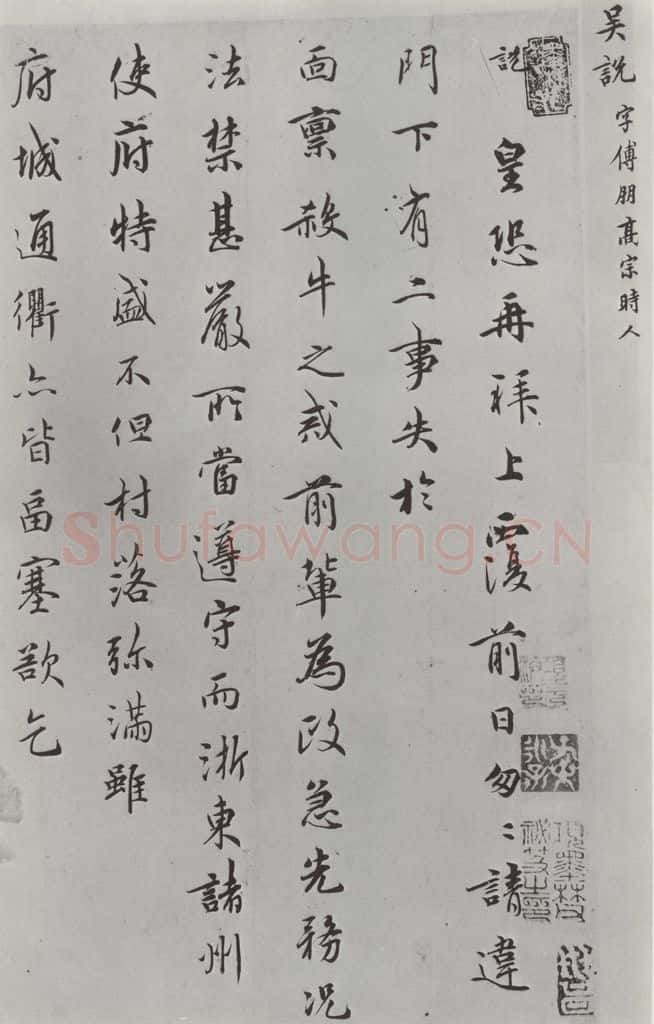 吳說 字傅朋高宗時人
說 皇恐再拜上覆前日匆〻請違
門下有二事失於
面稟殺牛之戒前輩為政急先務況
法禁甚嚴所當遵守而浙東諸州
使府特盛不但村落弥滿雖
府城通衢亦皆畐塞欲乞
Shufawang.CN